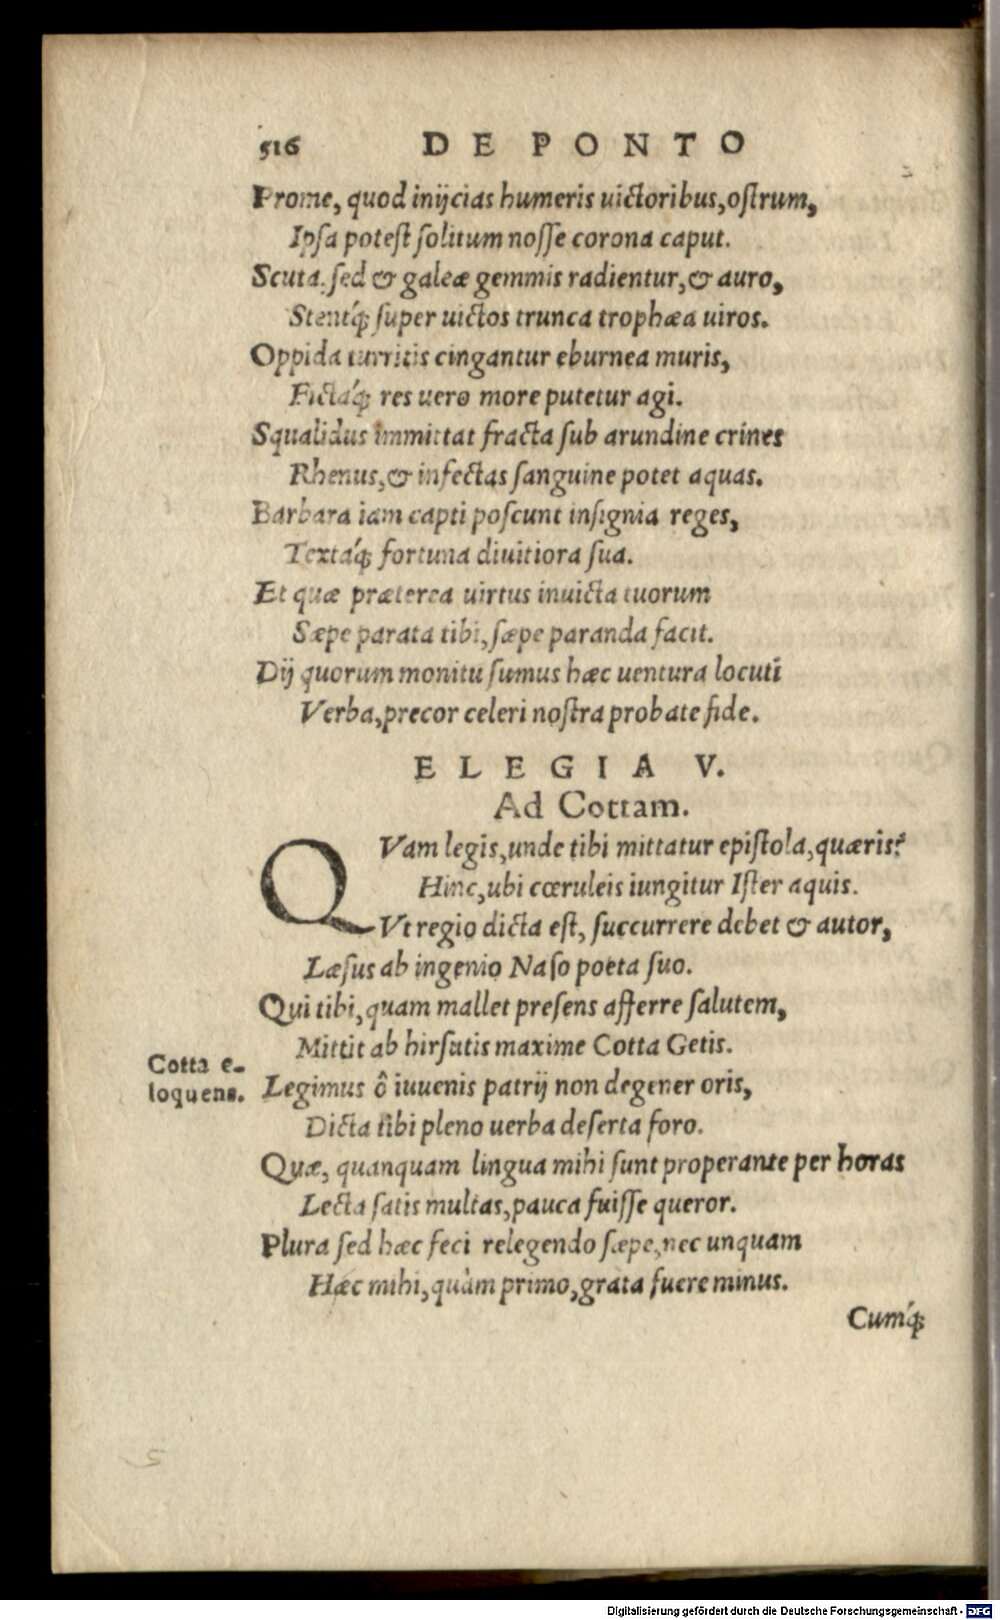 516 DE PONTO
Prome, quod inijcias humeris uictoribus, oſtrum,
Ipſa poteſt ſolitum noſſe corona caput.
Scuta, ſed & galeæ gemmis radientur, & auro,
Stentq́; ſuper uictos trunca trophæa uiros.
Oppida turritis cingantur eburnea muris,
Fictaq́; res uero more putetur agi.
Squalidus immittat fracta ſub arundine crines
Rhenus, & infectas ſanguine potet aquas.
Barbara iam capti poſcunt inſignia reges,
Textaq́; fortuna diuitiora ſua.
Et quæ præterea uirtus inuicta tuorum
Sæpe parata tibi, ſæpe paranda facit.
Dij quorum monitu ſumus hæc uentura locuti
Verba, precor celeri noſtra probate fide.
ELEGIA V.
Ad Cottam.
QVam legis, unde tibi mittatur epiſtola, quæris?
Hinc, ubi cœruleis iungitur Iſter aquis.
Vt regio dicta eſt, ſuccurrere debet & autor,
Læſus ab ingenio Naſo poeta ſuo.
Qui tibi, quam mallet preſens afferre ſalutem,
Mittit ab hirſutis maxime Cotta Getis.
Cotta e-
loquens.
Legimus ô iuuenis patrij non degener oris,
Dicta tibi pleno uerba deſerta foro.
Quæ, quanquam lingua mihi ſunt properante per horas
Lecta ſatis multas, pauca fuiſſe queror.
Plura ſed hæc feci relegendo ſæpe, nec unquam
Hæc mihi, quàm primo, grata fuere minus.
Cumq́;
5
Digitalisierung gefördert durch die Deutsche Forschungsgemeinschaft - DFG